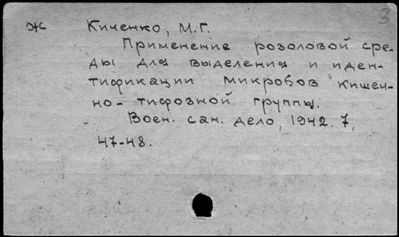 3
Ж Киченко, М.Г.
Применение розоловой сре-
ды для выделения и иден-
тификации микробов кишеч-
но- тифозной группы.
Воен. сан. дело, 1942. 7,
47-48.